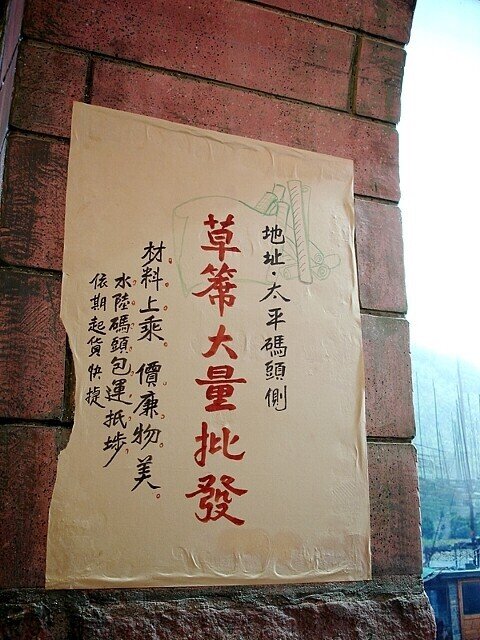 地址·太平碼頭側
草蓆大量批發
材料上乘。價廉物美。
水陸碼頭包運抵埗
依期起貨快捷